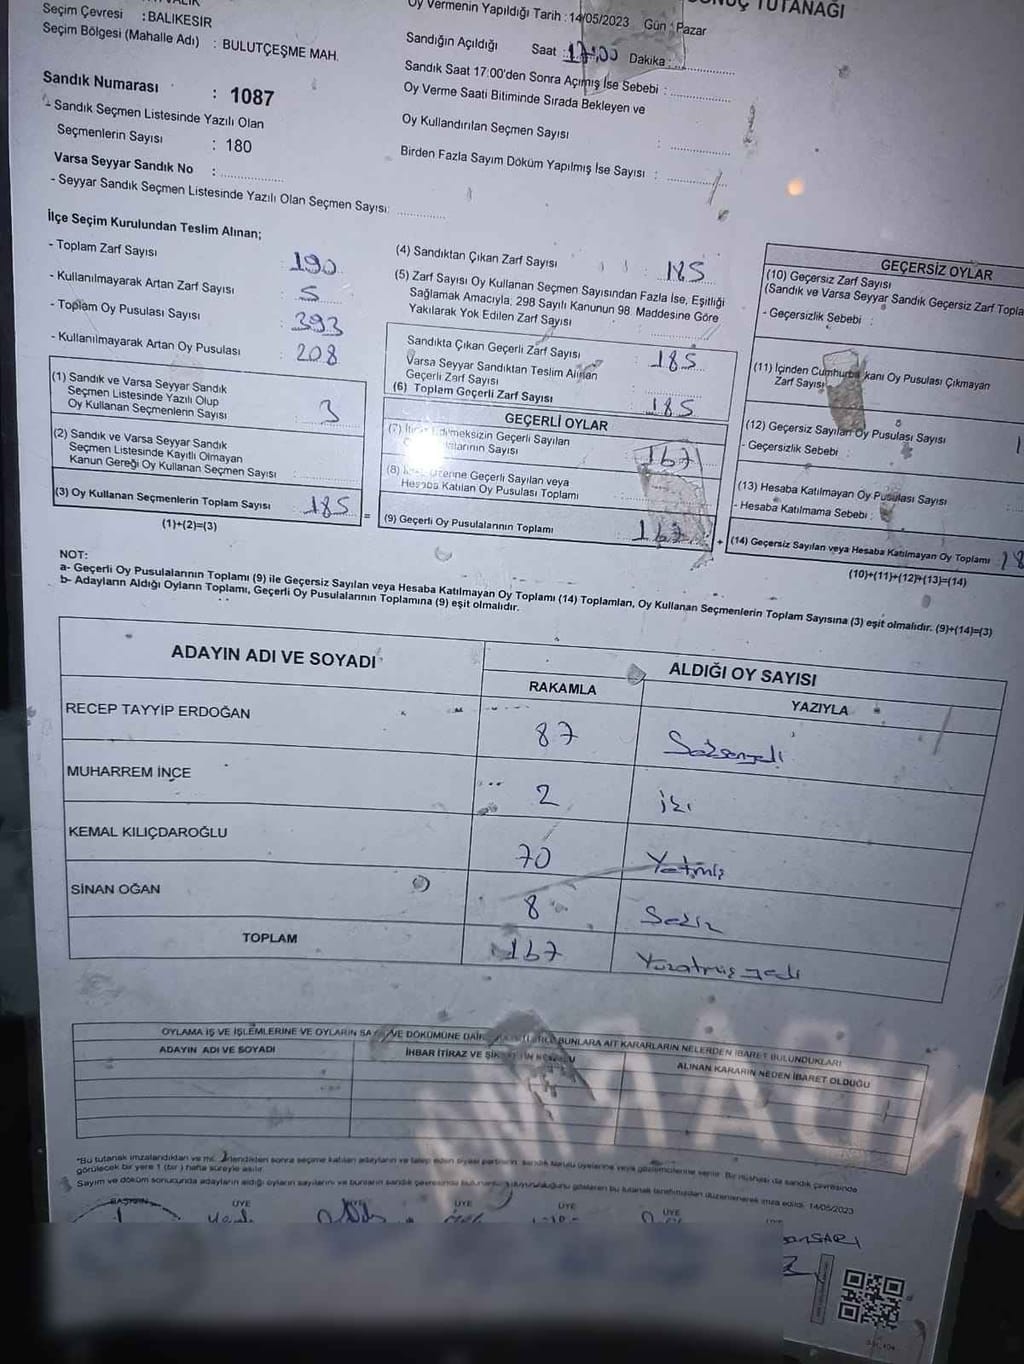 TUTANAĞI
Seçim Çevresi : BALIKESİR
Seçim Bölgesi (Mahalle Adı) : BULUTÇEŞME MAH.
Sandık Numarası : 1087
- Sandık Seçmen Listesinde Yazılı Olan
Seçmenlerin Sayısı : 180
Varsa Seyyar Sandık No :
- Seyyar Sandık Seçmen Listesinde Yazılı Olan Seçmen Sayısı:
Oy Vermenin Yapıldığı Tarih : 14/05/2023 Gün : Pazar
Sandığın Açıldığı Saat : 17:00 Dakika :
Sandık Saat 17:00'den Sonra Açılmış İse Sebebi :
Oy Verme Saati Bitiminde Sırada Bekleyen ve
Oy Kullandırılan Seçmen Sayısı :
Birden Fazla Sayım Döküm Yapılmış İse Sayısı :
İlçe Seçim Kurulundan Teslim Alınan;
- Toplam Zarf Sayısı : 190
- Kullanılmayarak Artan Zarf Sayısı : 5
- Toplam Oy Pusulası Sayısı : 393
- Kullanılmayarak Artan Oy Pusulası : 208
(1) Sandık ve Varsa Seyyar Sandık
Seçmen Listesinde Yazılı Olup
Oy Kullanan Seçmenlerin Sayısı : 3
(2) Sandık ve Varsa Seyyar Sandık
Seçmen Listesinde Kayıtlı Olmayan
Kanun Gereği Oy Kullanan Seçmen Sayısı :
(3) Oy Kullanan Seçmenlerin Toplam Sayısı : 185
(1)+(2)=(3)
=
(4) Sandıktan Çıkan Zarf Sayısı : 185
(5) Zarf Sayısı Oy Kullanan Seçmen Sayısından Fazla İse, Eşitliği
Sağlamak Amacıyla, 298 Sayılı Kanunun 98. Maddesine Göre
Yakılarak Yok Edilen Zarf Sayısı :
Sandıkta Çıkan Geçerli Zarf Sayısı : 185
Varsa Seyyar Sandıktan Teslim Alınan
Geçerli Zarf Sayısı :
(6) Toplam Geçerli Zarf Sayısı : 185
GEÇERLİ OYLAR
(7) Edilmeksizin Geçerli Sayılan
Sayısı : 167
(8) Üzerine Geçerli Sayılan veya
Hesaba Katılan Oy Pusulası Toplamı :
(9) Geçerli Oy Pusulalarının Toplamı : 167
+
GEÇERSİZ OYLAR
(10) Geçersiz Zarf Sayısı
(Sandık ve Varsa Seyyar Sandık Geçersiz Zarf
- Geçersizlik Sebebi :
(11) İçinden Oy Pusulası Çıkmayan
Zarf Sayısı
(12) Geçersiz Sayılan Oy Pusulası Sayısı
- Geçersizlik Sebebi :
(13) Hesaba Katılmayan Oy Pusulası Sayısı
- Hesaba Katılmama Sebebi :
(14) Geçersiz Sayılan veya Hesaba Katılmayan Oy Toplamı 18
(10)+(11)+(12)+(13)=(14)
NOT:
a- Geçerli Oy Pusulalarının Toplamı (9) ile Geçersiz Sayılan veya Hesaba Katılmayan Oy Toplamı (14) Toplamları, Oy Kullanan Seçmenlerin Toplam Sayısına (3) eşit olmalıdır. (9)+(14)=(3)
b- Adayların Aldığı Oyların Toplamı, Geçerli Oy Pusulalarının Toplamına (9) eşit olmalıdır.
ADAYIN ADI VE SOYADI
ALDIĞI OY SAYISI
RAKAMLA YAZIYLA
RECEP TAYYİP ERDOĞAN 87 Seksenyedi
MUHARREM İNCE 2 iki
KEMAL KILIÇDAROĞLU 70 Yetmiş
SİNAN OĞAN 8 Sekiz
TOPLAM 167 Yüzatmışyedi
OYLAMA İŞ VE İŞLEMLERİNE VE OYLARIN VE DÖKÜMÜNE BUNLARA AİT KARARLARIN NELERDEN İBARET BULUNDUKLARI
ADAYIN ADI VE SOYADI
İHBAR İTİRAZ VE
ALINAN KARARIN NEDEN İBARET OLDUĞU
*Bu tutanak imzalandıktan ve sonra seçime katılan adayların ve talep eden siyasi partilerin sandık kurulu üyelerine veya gözlemcilerine verilir. Bir nüshası da sandık çevresinde
görülecek bir yere 1 (bir) hafta süreyle asılır.
Sayım ve döküm sonucunda adayların aldığı oyların sayılarını ve bunların sandık çevresinde gösteren bu tutanak tarafımızdan düzenlenerek imza edildi. 14/05/2023
BAŞKAN ÜYE ÜYE ÜYE ÜYE ÜYE
SARI